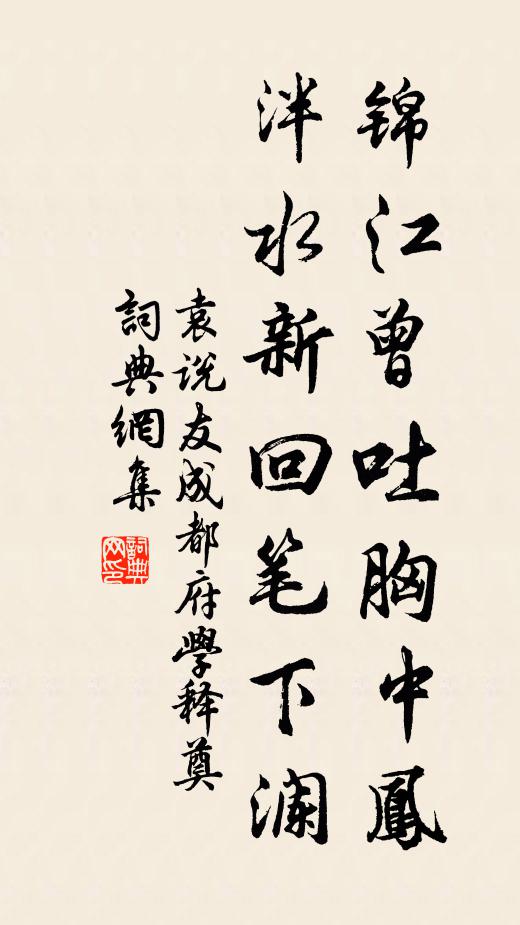 锦江曾吐胸中鳳
泮水新回笔下澜
袁说友成都府學释奠
詞典網集
詞典网印